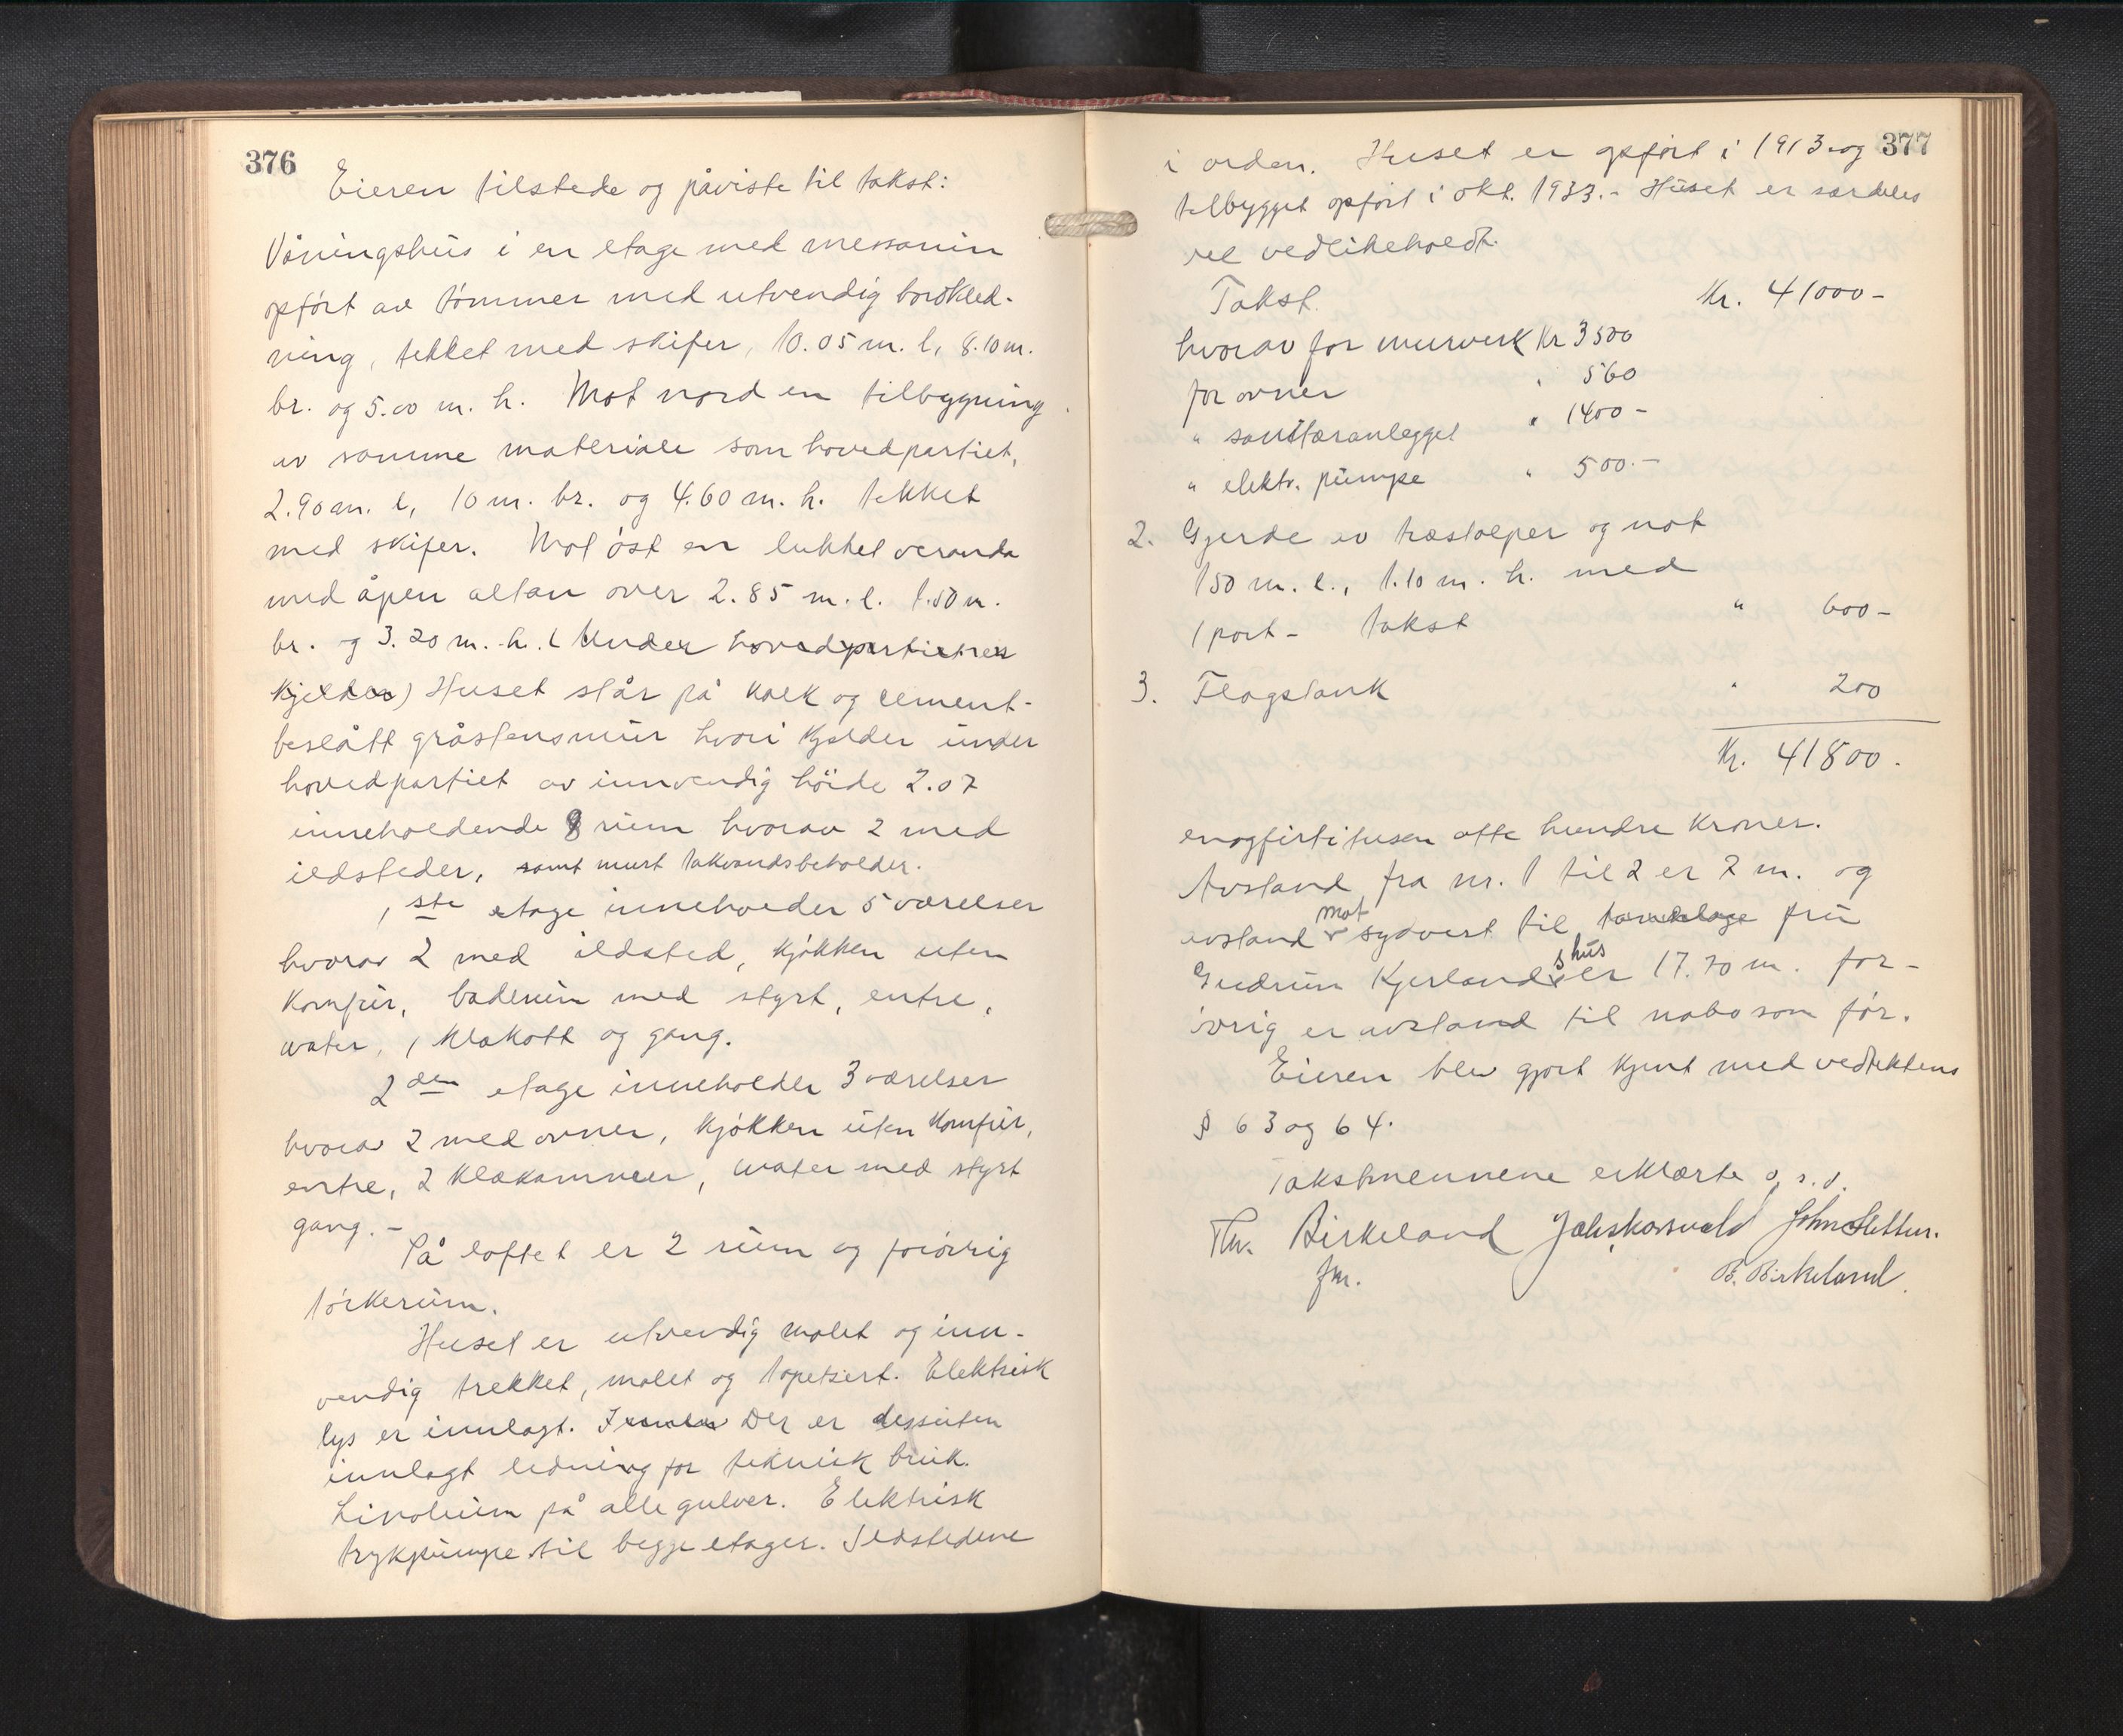 376
Eieren tilstede og påviste til takst:
Våningshus i en etage med messanin
opført av tømmer med utvendig bordkled-
ning, tekket med skifer, 10.05 m. l, 8.10 m.
br. og 5.00 m. h. Mot nord en tilbygning
av samme materiale som hovedpartiet,
2.90 m. l, 10 m. br. og 4.60 m. h. tekket
med skifer. Mot øst en lukket veranda
med åpen altan over 2.85 m. l. 1.50 m.
br. og 3.20 m. h. (Under hovedpartiet en
kjelder) Huset står på kalk og cement-
beslått gråstensmur hvori kjelder under
hovedpartiet av innvendig høide 2.07
inneholdende 8 rum hvorav 2 med
ildsteder, samt murt takvandsbeholder.
1ste etage inneholder 5 værelser
hvorav 2 med ildsted, kjøkken uten
komfur, baderum med styrt, entre,
water, 1 klakott og gang.
2den etage inneholder 3 værelser
hvorav 2 med ovner, kjøkken uten komfur,
entre, 2 klækammer, water med styrt
gang. -
På loftet er 2 rum og forøvrig
tørkerum.
Huset er utvendig malet og inn-
vendig trekket, malet og tapetsert. Elektrisk
lys er innlagt. Der er dessuten
innlagt ledning for teknisk bruk.
Linoleum på alle gulver. Elektrisk
trykpumpe til begge etager. Ildstedene
377
i orden. Huset er opført i 1913 og
tilbygget opført i okt. 1933. - Huset er særdeles
vel vedlikeholdt.
Takst. Kr. 41000 -
hvorav for murverk Kr 3500
for ovner " 560
" sanitæranlegget " 1400 -
" elektr. pumpe " 500. -
2. Gjerde av træstolper og not
150 m. l., 1.10 m. h. med
1 port - takst " 600 -
3. Flagstank " 200
Kr. 41800.
enogfirtitusen otte hundre kroner.
Avstand fra nr. 1 til 2 er 7 m. og
avstand mot sydvest til fru
Gudrun Kjerlands hus er 17.70 m. for-
øvrig er avstand til nabo som før.
Eieren blev gjort kjent med vedtektens
§ 63 og 64.
Takstmennene erklærte o. s. v.
Th. Birkeland John Slettun.
fm. B. Birkeland.